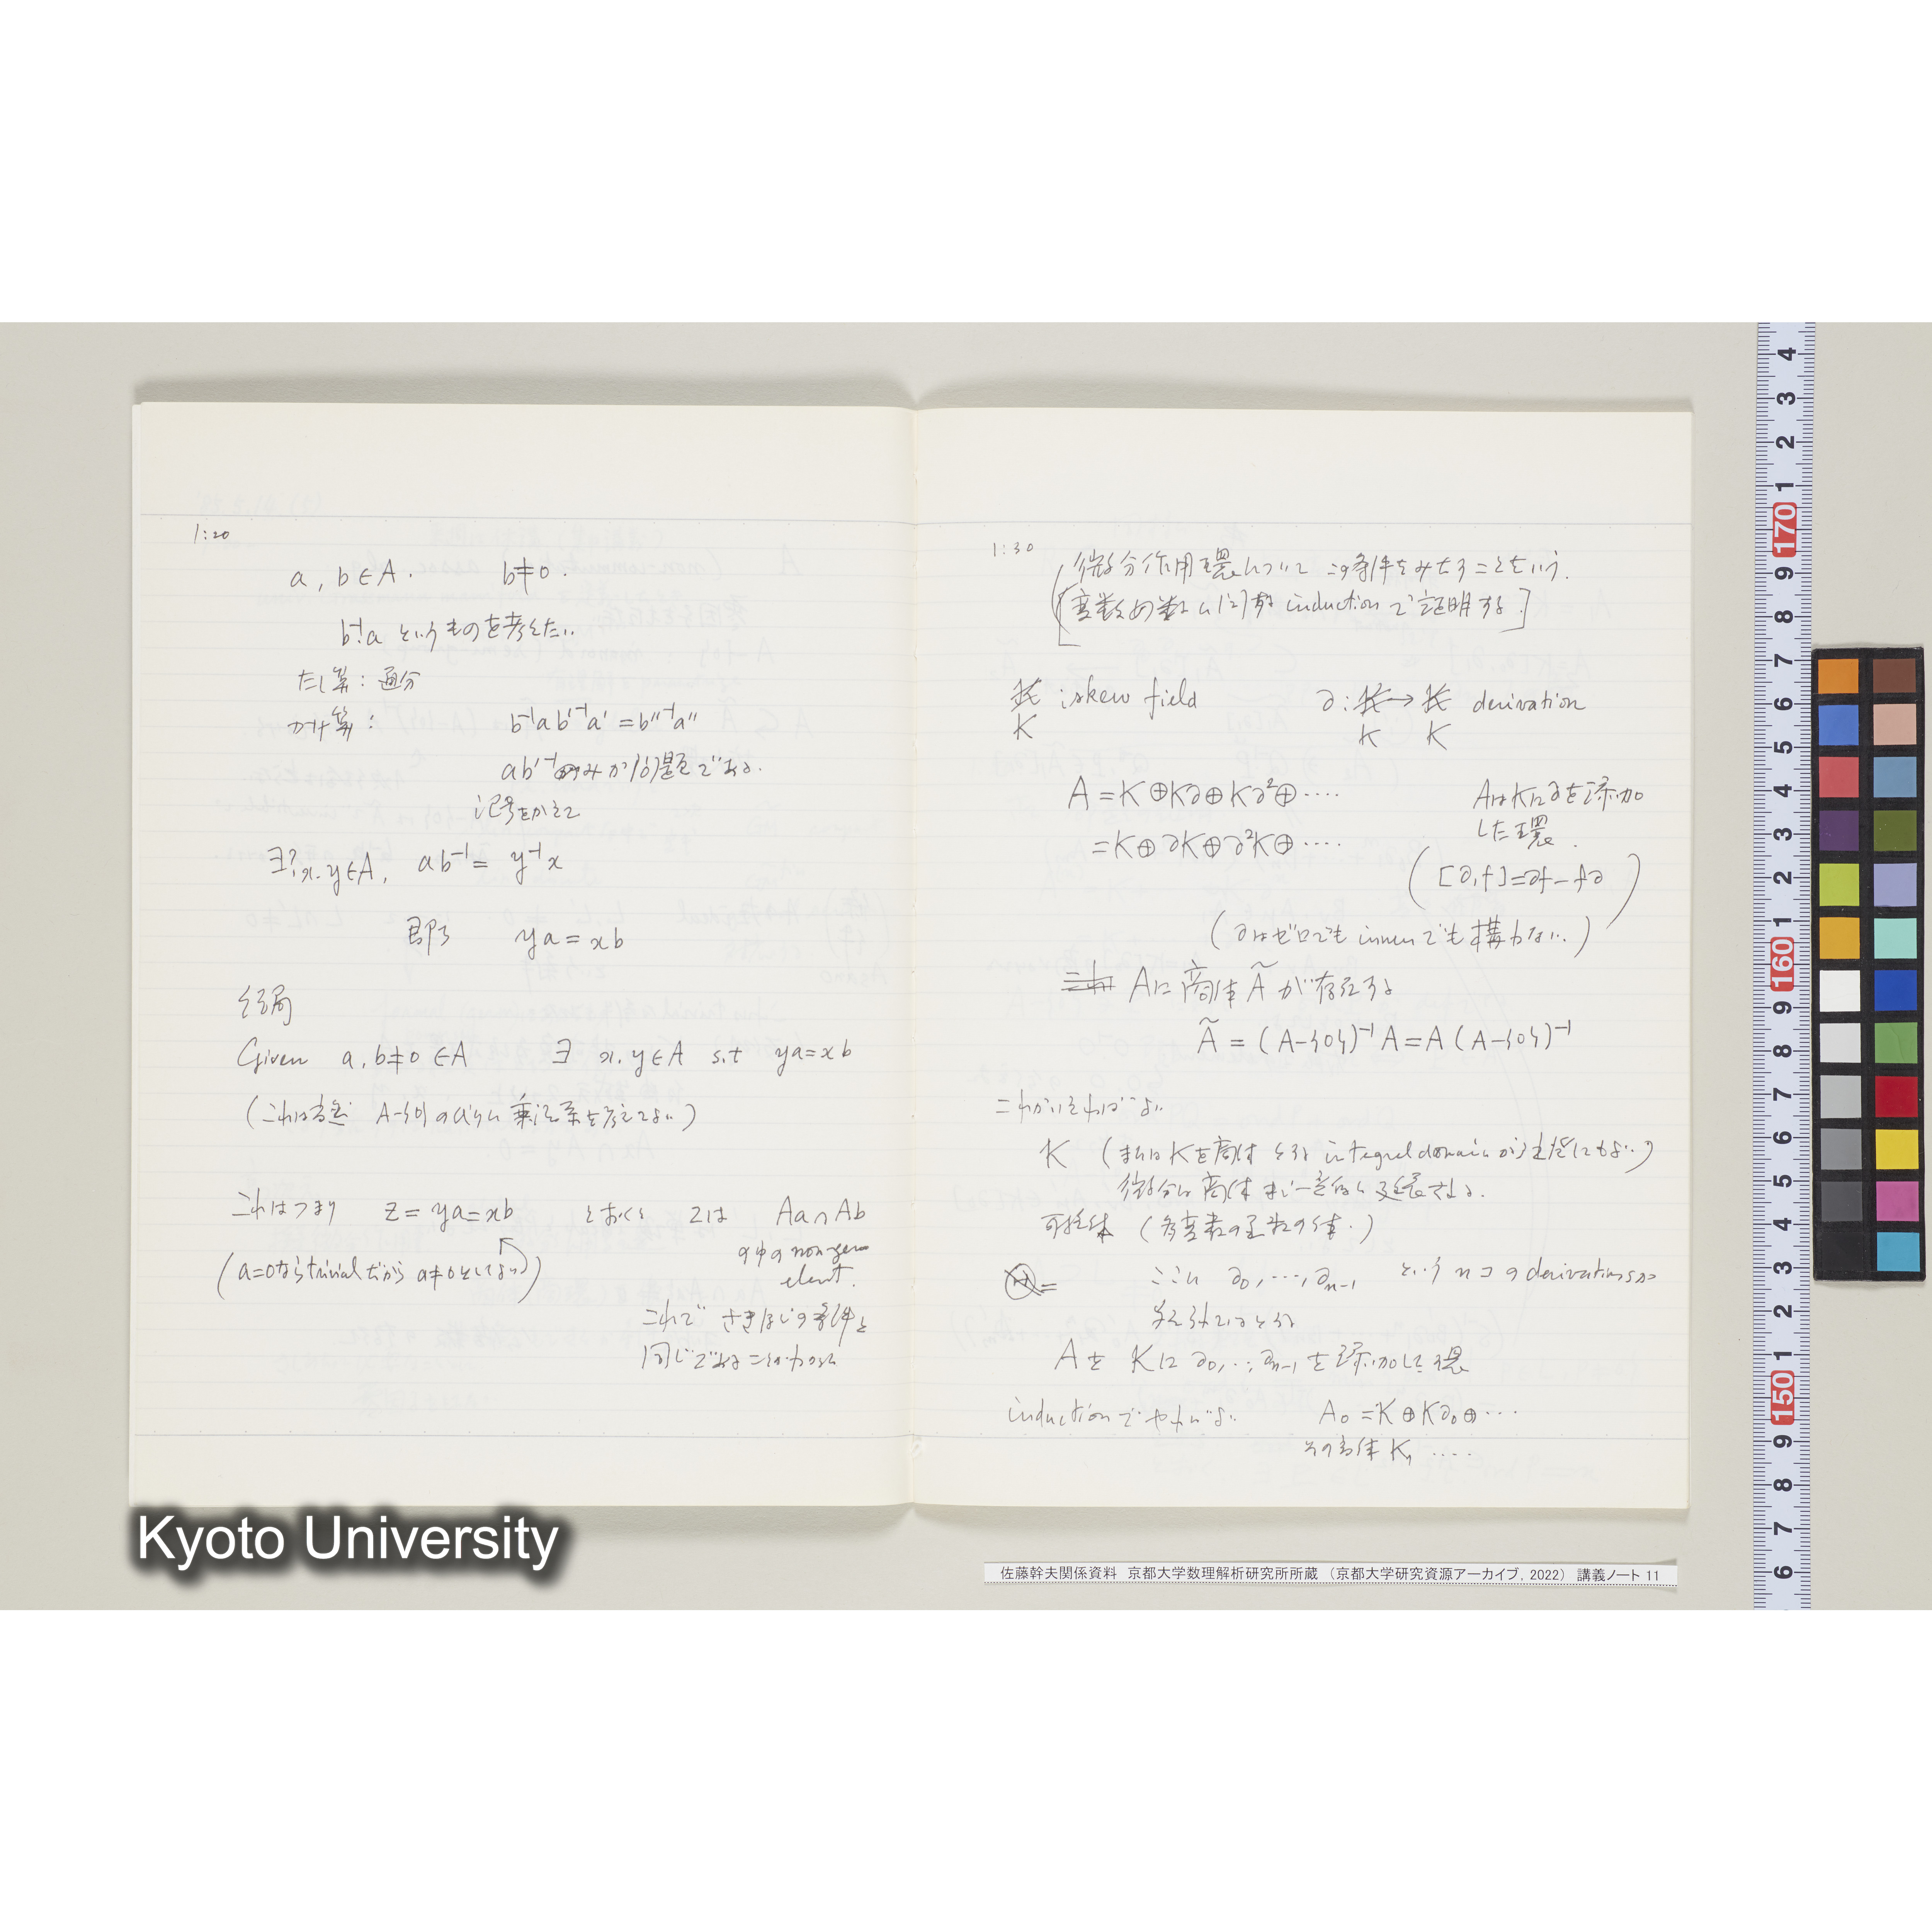 1:20
a, b ∈ A. b≠0.
b⁻¹a というものを考えたい
たし算:通分
かけ算: b⁻¹a b'⁻¹a' = b''⁻¹a''
ab'⁻¹のみが問題である.
記号をかえて
∃? x, y ∈ A, ab⁻¹ = y⁻¹x
即ち ya = xb
結局
Given a, b≠0 ∈ A ∃ x, y ∈ A s.t ya = xb
(これは A-{0}の 乗法系を考えてよい)
これはつまり z = ya = xb とおくと zは Aa∩Ab
の中の non-zero
element.
(a=0ならtrivialだから a≠0としてよい)
これで さきほどの条件と
同じであることがわかる
1:30
微分作用環について この条件をみたすことをいう.
[変数の数に関する induction で証明する.]
K: skew field ∂: K → K derivation
K K K
A = K⊕K∂⊕K∂²⊕····
= K⊕∂K⊕∂²K⊕····
AはKに∂を添加
した環.
([∂,f]=∂f−f∂)
(∂はゼロでも innerでも構わない.)
Aに商体Ãが存在する
Ã = (A−{0})⁻¹A = A(A−{0})⁻¹
これがいえればよい
K (またはKを商体とする integral domain から出発してもよい)
微分は商体まで一意的に延長される.
可換体 (多変数の函数の体.)
ここに ∂₀, ···, ∂ₙ₋₁ という nコの derivationsが
与えられているとする
Aを Kに ∂₀, ··, ∂ₙ₋₁ を添加した環
inductionでやればよい A₀ = K⊕K∂₀⊕···
その商体 K₁ ····
Kyoto University
佐藤幹夫関係資料 京都大学数理解析研究所所蔵 (京都大学研究資源アーカイブ, 2022) 講義ノート 11
4
3
2
1
170
9
8
7
6
5
4
3
2
1
160
9
8
7
6
5
4
3
2
1
150
9
8
7
6